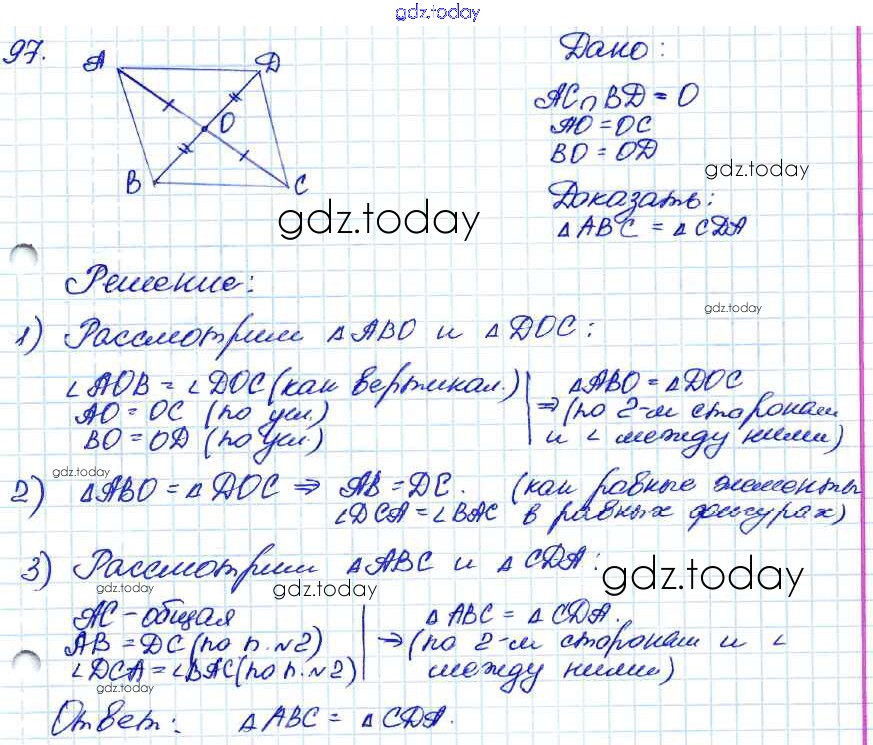 gdz.today
97.
A
D
O
B
C
Дано:
AC∩BD = O
AO = OC
BO = OD
gdz.today
Доказать:
△ABC = △CDA
gdz.today
Решение:
gdz.today
1) Рассмотрим △ABO и △DOC:
∠AOB = ∠DOC (как вертикал.)
AO = OC (по усл.)
BO = OD (по усл.)
△ABO = △DOC
⇒ (по 2-м сторонам
и ∠ между ними)
gdz.today
2) △ABO = △DOC ⇒ AB = DC. (как равные элементы
∠DCA = ∠BAC в равных фигурах)
3) Рассмотрим △ABC и △CDA:
gdz.today
gdz.today
gdz.today
AC - общая
AB = DC (по п.№2)
∠DCA = ∠BAC (по п.№2)
△ABC = △CDA.
⇒ (по 2-м сторонам и ∠
между ними)
gdz.today
Ответ: △ABC = △CDA.